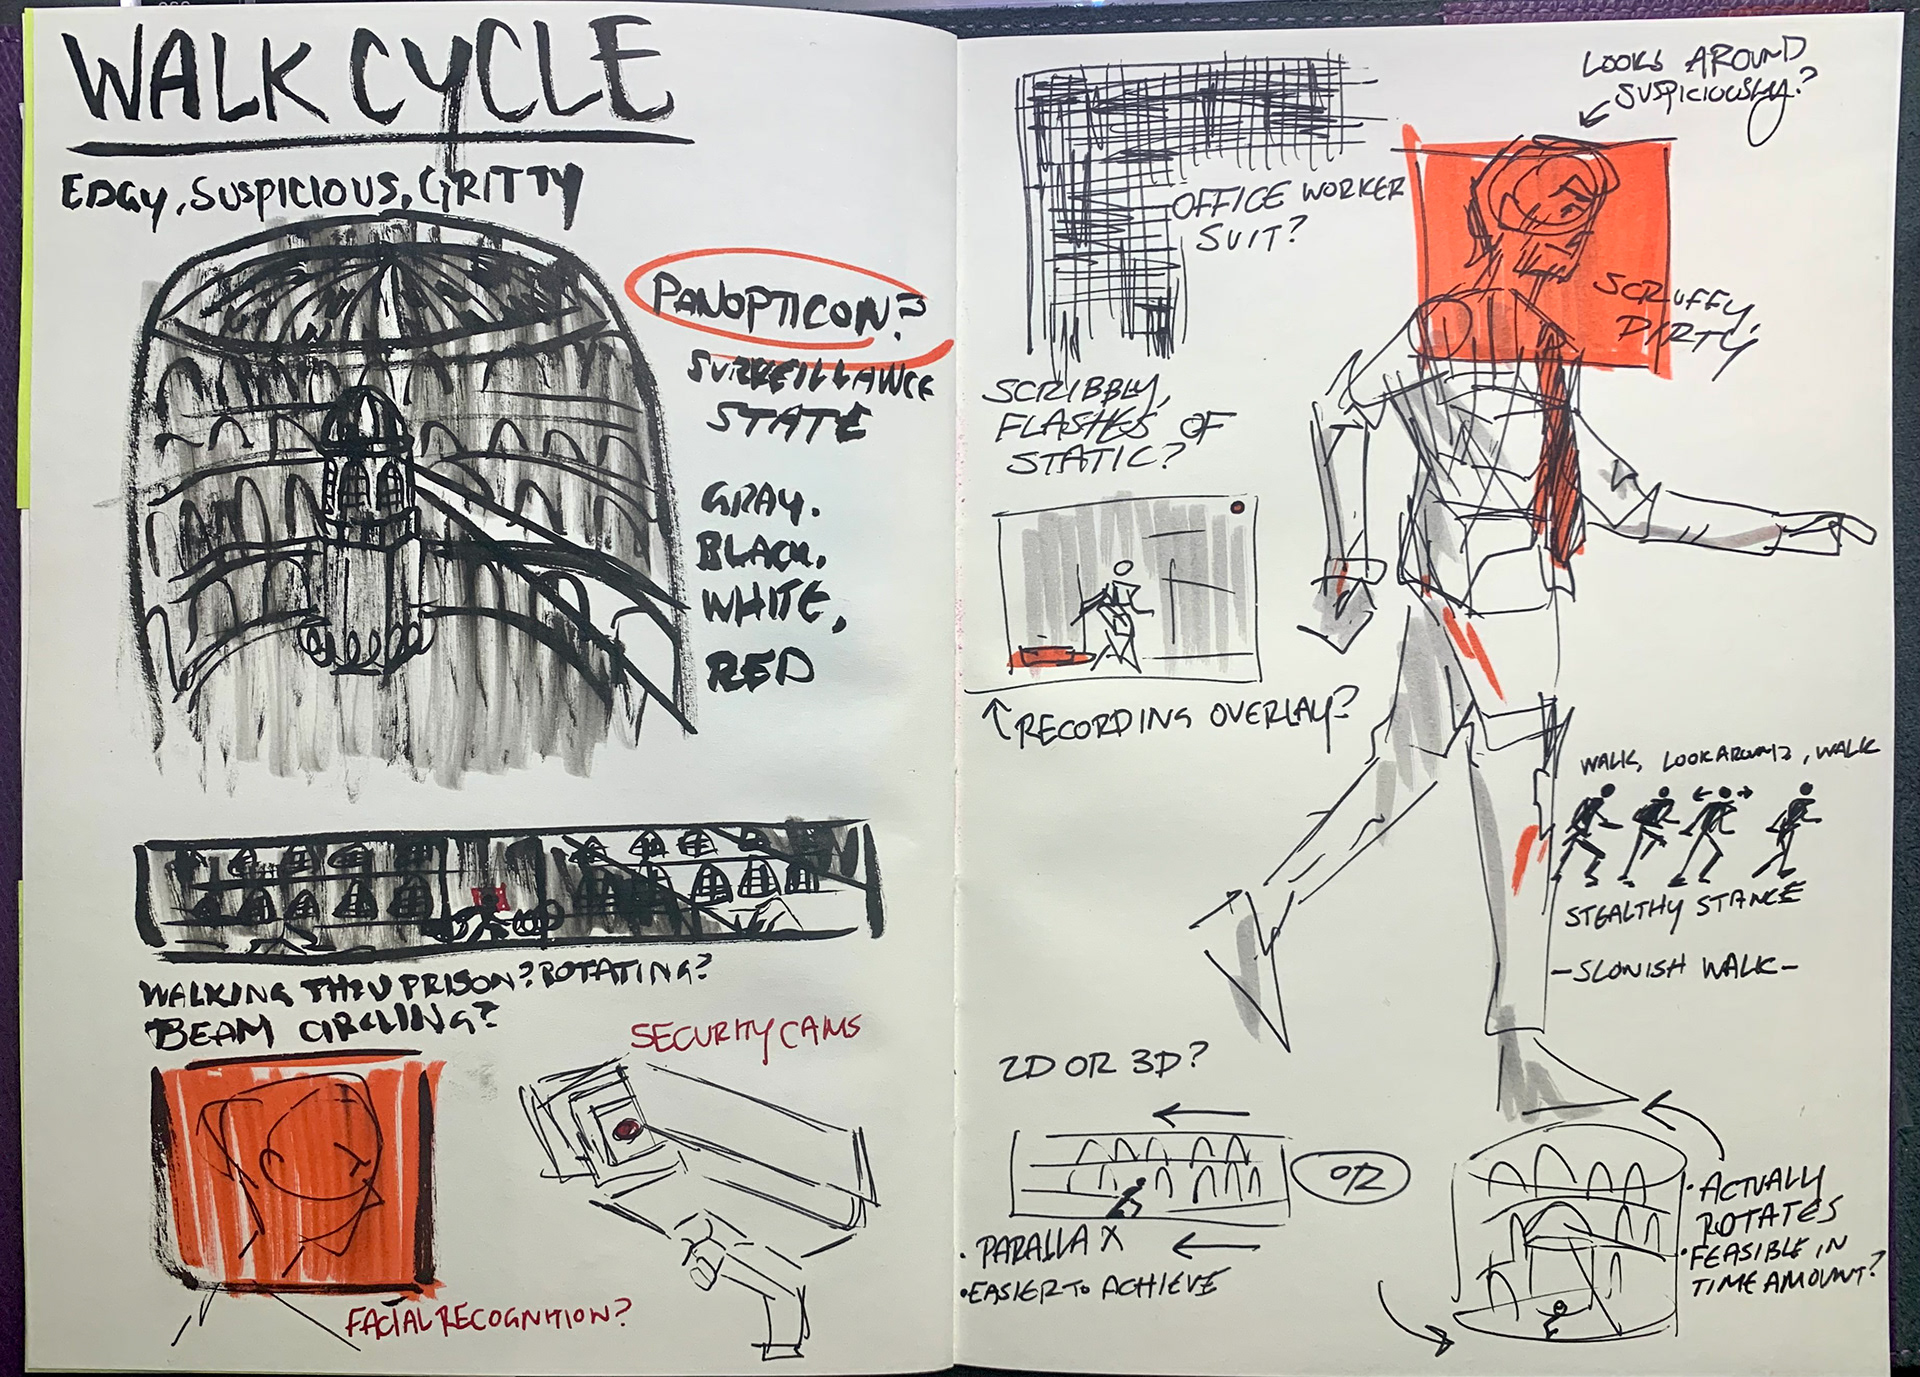 WALK CYCLE
EDGY, SUSPICIOUS, GRITTY
PANOPTICON?
SURVEILLANCE
STATE
GRAY.
BLACK.
WHITE,
RED
WALKING THRU PRISON? ROTATING?
BEAM CIRCLING?
SECURITY CAMS
FACIAL RECOGNITION?
LOOKS AROUND
SUSPICIOUSLY?
OFFICE WORKER
SUIT?
SCRUFFY,
DIRTY,
SCRIBBLY,
FLASHES OF
STATIC?
RECORDING OVERLAY?
WALK, LOOK AROUND, WALK
STEALTHY STANCE
-SLOWISH WALK-
2D OR 3D?
OR
• PARALLAX
• EASIER TO ACHIEVE
• ACTUALLY
ROTATES
• FEASIBLE IN
TIME AMOUNT?